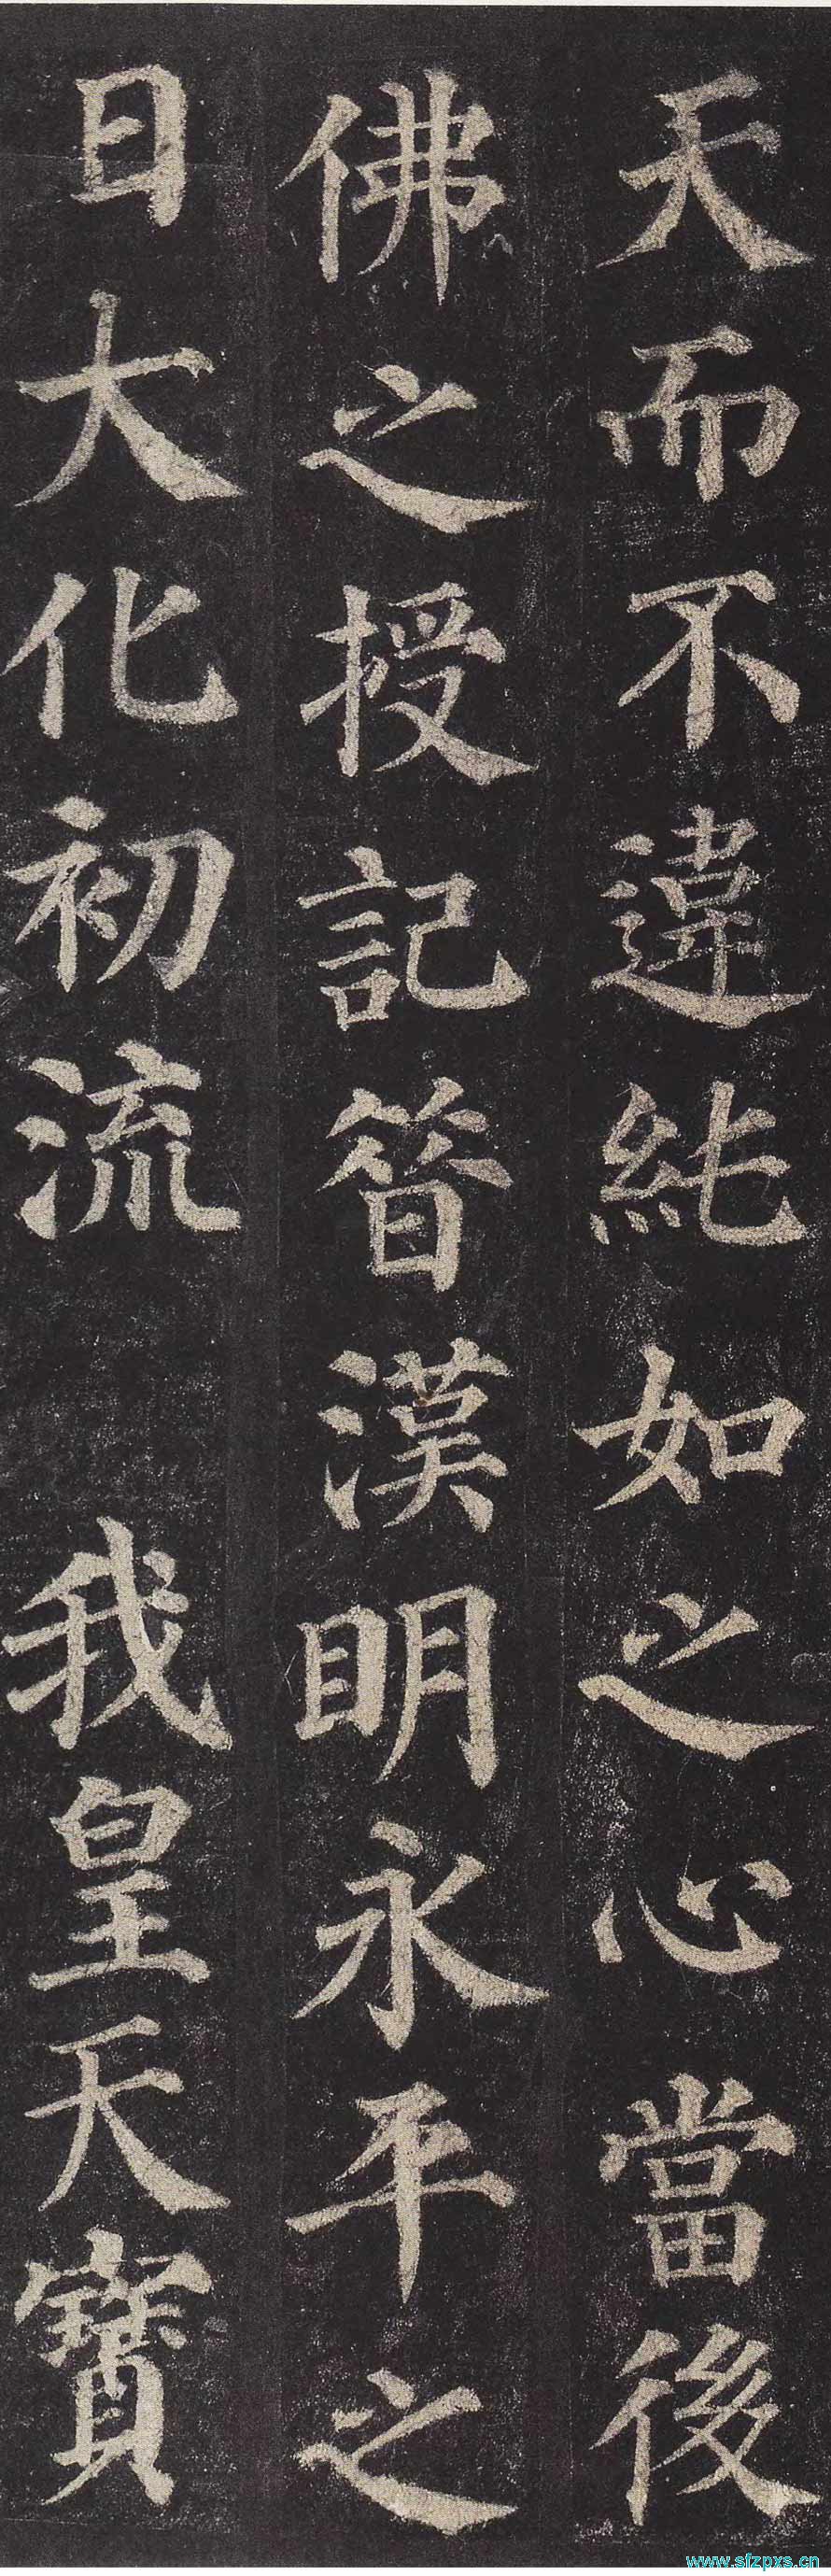 天而不違純如之心當後
佛之授記昔漢明永平之
日大化初流 我皇天寶
www.sfzpxs.cn